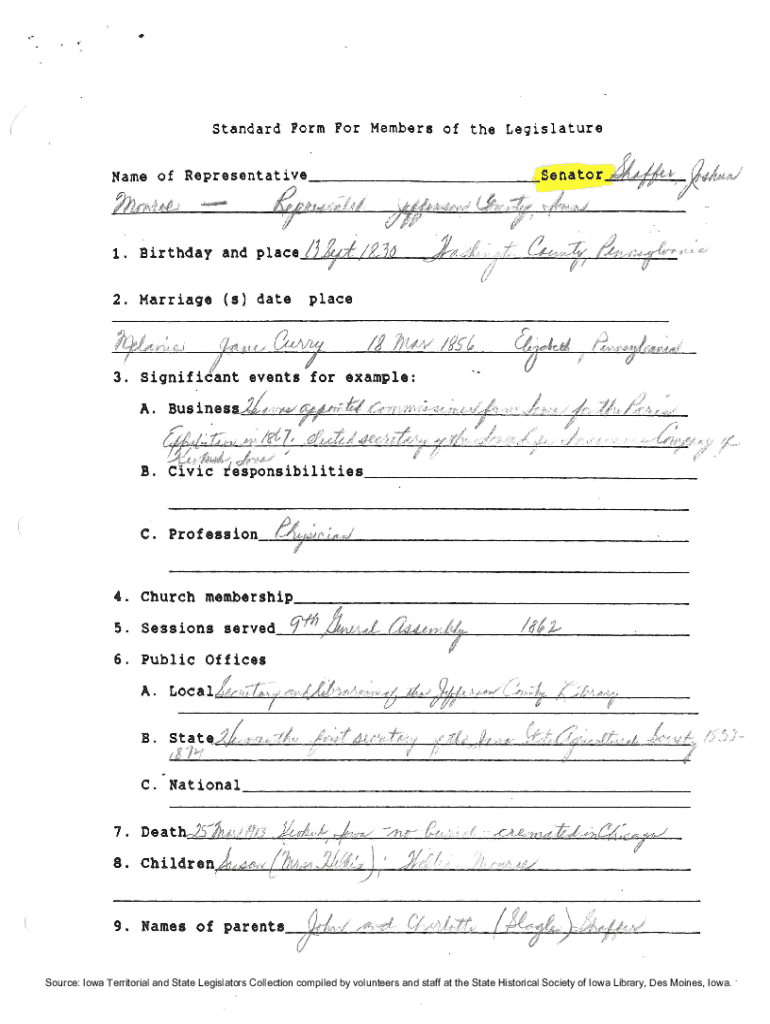 Standard Form For Members of the Legislature
Name of Representative Senator Shaffer, Joshua
Monroe — Represented Jefferson County, Iowa
1. Birthday and place 13 Sept 1830 Washington County, Pennsylvania
2. Marriage (s) date place
Melanie Jane Curry 18 Mar 1856 Elizabeth, Pennsylvania
3. Significant events for example:
A. Business He was appointed commissioner from Iowa for the Paris
Exhibition in 1867; elected secretary of the Iowa Insurance Company of
Keokuk, Iowa
B. Civic responsibilities
C. Profession Physician
4. Church membership
5. Sessions served 9th General Assembly 1862
6. Public Offices
A. Local Secretary and librarian of the Jefferson County Library
B. State He was the first secretary of the Iowa State Agricultural Society 1853-
1874
C. National
7. Death 25 Mar 1913 Keokuk, Iowa - no burial - cremated in Chicago
8. Children Susan (Mrs. Hollis); Monroe
9. Names of parents John and Charlotte (Slagle) Shaffer
Source: Iowa Territorial and State Legislators Collection compiled by volunteers and staff at the State Historical Society of Iowa Library, Des Moines, Iowa.